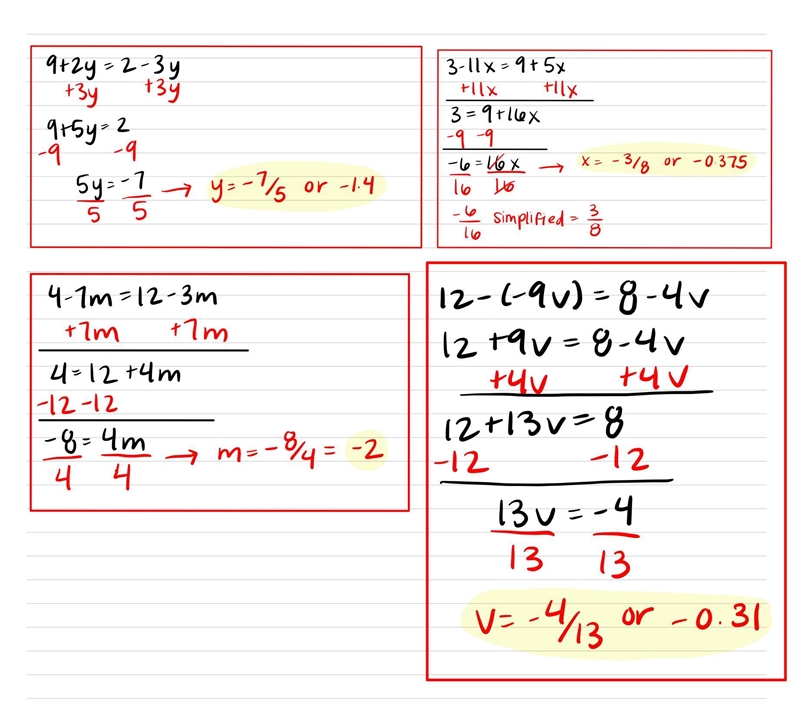 9+2y = 2-3y
+3y +3y
9+5y = 2
-9 -9
5y = -7 → y = -7/5 or -1.4
5 5
3-11x = 9+5x
+11x +11x
3 = 9+16x
-9 -9
-6 = 16x → x = -3/8 or -0.375
16 16
-6/16 simplified = 3/8
4-7m = 12-3m
+7m +7m
4 = 12+4m
-12 -12
-8 = 4m → m = -8/4 = -2
4 4
12-(-9v) = 8-4v
12+9v = 8-4v
+4v +4v
12+13v = 8
-12 -12
13v = -4
13 13
v = -4/13 or -0.31